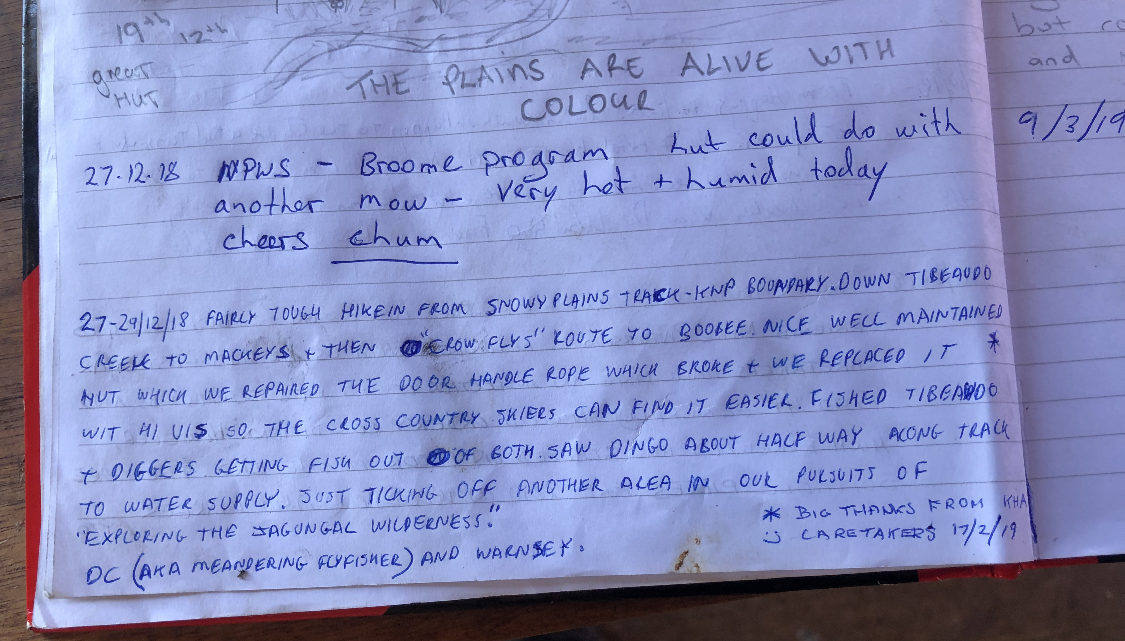 19th 12th
great
HUT
THE PLAINS ARE ALIVE WITH
COLOUR
27.12.18 NPWS - Broome program hut could do with
another mow - very hot + humid today
cheers chum
27-29/12/18 FAIRLY TOUGH HIKEIN FROM SNOWY PLAINS TRACK-KNP BOUNDARY. DOWN TIBEAUDO
CREEK TO MACKEYS + THEN "CROW FLYS" ROUTE TO BOOBEE. NICE WELL MAINTAINED
HUT WHICH WE REPAIRED THE DOOR HANDLE ROPE WHICH BROKE + WE REPLACED IT *
WIT HI VIS SO THE CROSS COUNTRY SKIERS CAN FIND IT EASIER. FISHED TIBEAUDO
+ DIGGERS GETTING FISH OUT OF BOTH. SAW DINGO ABOUT HALF WAY ALONG TRACK
TO WATER SUPPLY. JUST TICKING OFF ANOTHER AREA IN OUR PURSUITS OF
"EXPLORING THE JAGUNGAL WILDERNESS."
DC (AKA MEANDERING FLYFISHER) AND WARNSEK.
* BIG THANKS FROM KHA
CARETAKERS 17/2/19
but
and
9/3/19